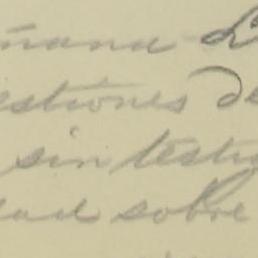 mana L
estiones de
sin testig
dad sobre